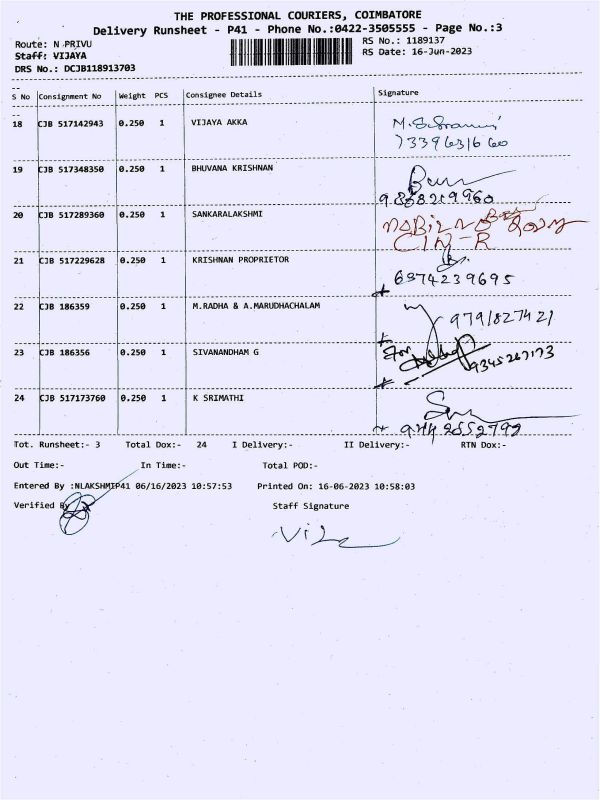 THE PROFESSIONAL COURIERS, COIMBATORE
Delivery Runsheet - P41 - Phone No.:0422-3505555 - Page No.:3
Route: N PRIVU
RS No.: 1189137
Staff: VIJAYA
RS Date: 16-Jun-2023
DRS No.: DCJB118913703
S No Consignment No Weight PCS Consignee Details Signature
18 CJB 517142943 0.250 1 VIJAYA AKKA
7339631660
19 CJB 517348350 0.250 1 BHUVANA KRISHNAN
20 CJB 517289360 0.250 1 SANKARALAKSHMI
21 CJB 517229628 0.250 1 KRISHNAN PROPRIETOR
6374239695
22 CJB 186359 0.250 1 M.RADHA & A.MARUDHACHALAM
9791827421
23 CJB 186356 0.250 1 SIVANANDHAM G
9345267173
24 CJB 517173760 0.250 1 K SRIMATHI
9442552792
Tot. Runsheet:- 3 Total Dox:- 24 I Delivery:- II Delivery:- RTN Dox:-
Out Time:- In Time:- Total POD:-
Entered By :NLAKSHMIP41 06/16/2023 10:57:53 Printed On: 16-06-2023 10:58:03
Verified By Staff Signature